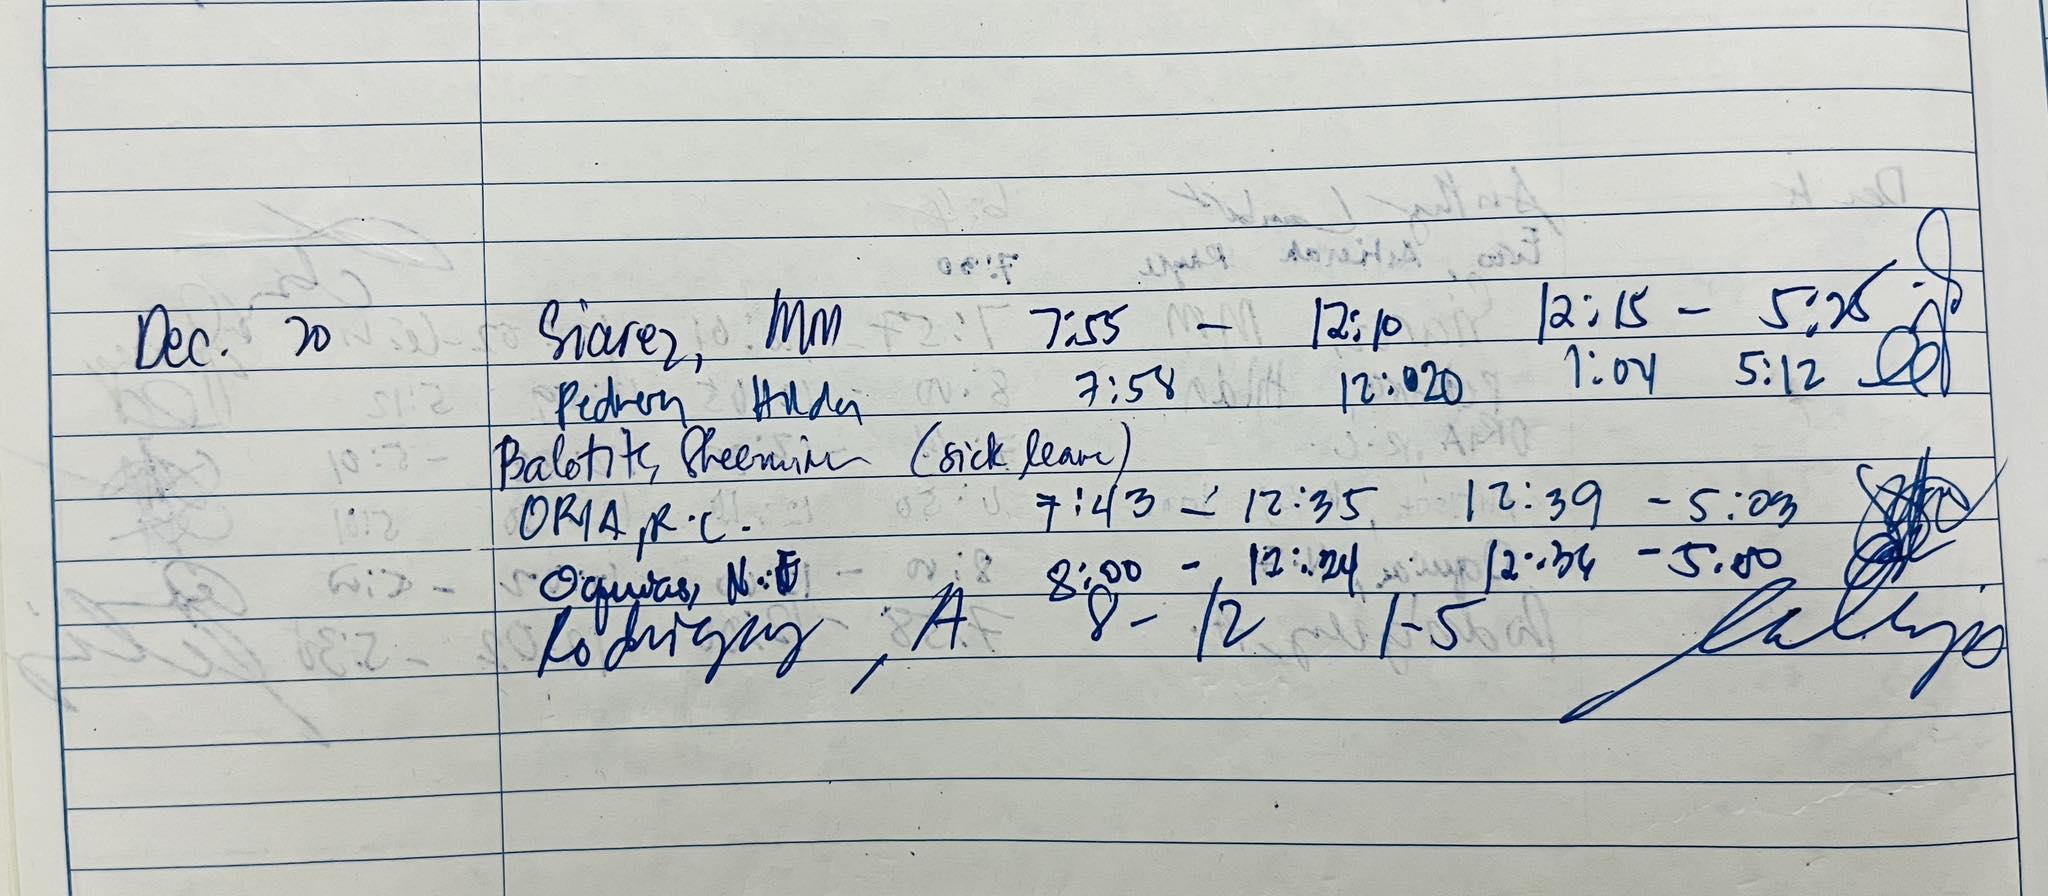 Dec. 20 Siarez, MM 7:55 - 12:10 12:15 - 5:25
Hilda 7:58 12:020 1:04 5:12
Balotite, (sick leave)
ORIA, R.C. 7:43 - 12:35 12:39 - 5:03
8:00 - 12:24 12:34 - 5:00
Rodriguez, A 8-12 1-5